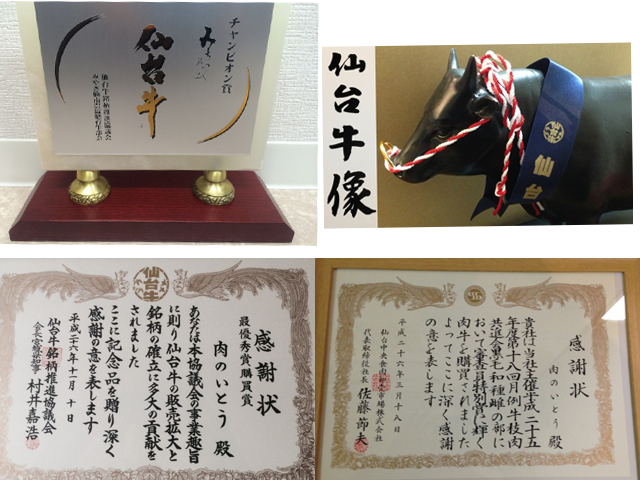 チャンピオン賞
仙台牛
仙台牛銘柄推進協議会
仙台牛像
仙台
仙台牛
感謝状
最優秀賞購買賞
肉のいとう 殿
あなたは本協議会の事業趣旨
に則り仙台牛の販売拡大と
銘柄の確立に多大の貢献を
されました
ここに記念品を贈り深く
感謝の意を表します
平成二十六年十一月十日
仙台牛銘柄推進協議会
会長 宮城県知事 村井嘉浩
感謝状
肉のいとう 殿
貴社は当社主催平成二十五
年度第十八回月例牛枝肉
共進会黒毛和種雌の部に
おいて審査員特別賞に輝く
肉牛を購買されました
よってここに深く感謝
の意を表します
平成二十六年三月十八日
仙台中央食肉卸売市場株式会社
代表取締役社長 佐藤節夫